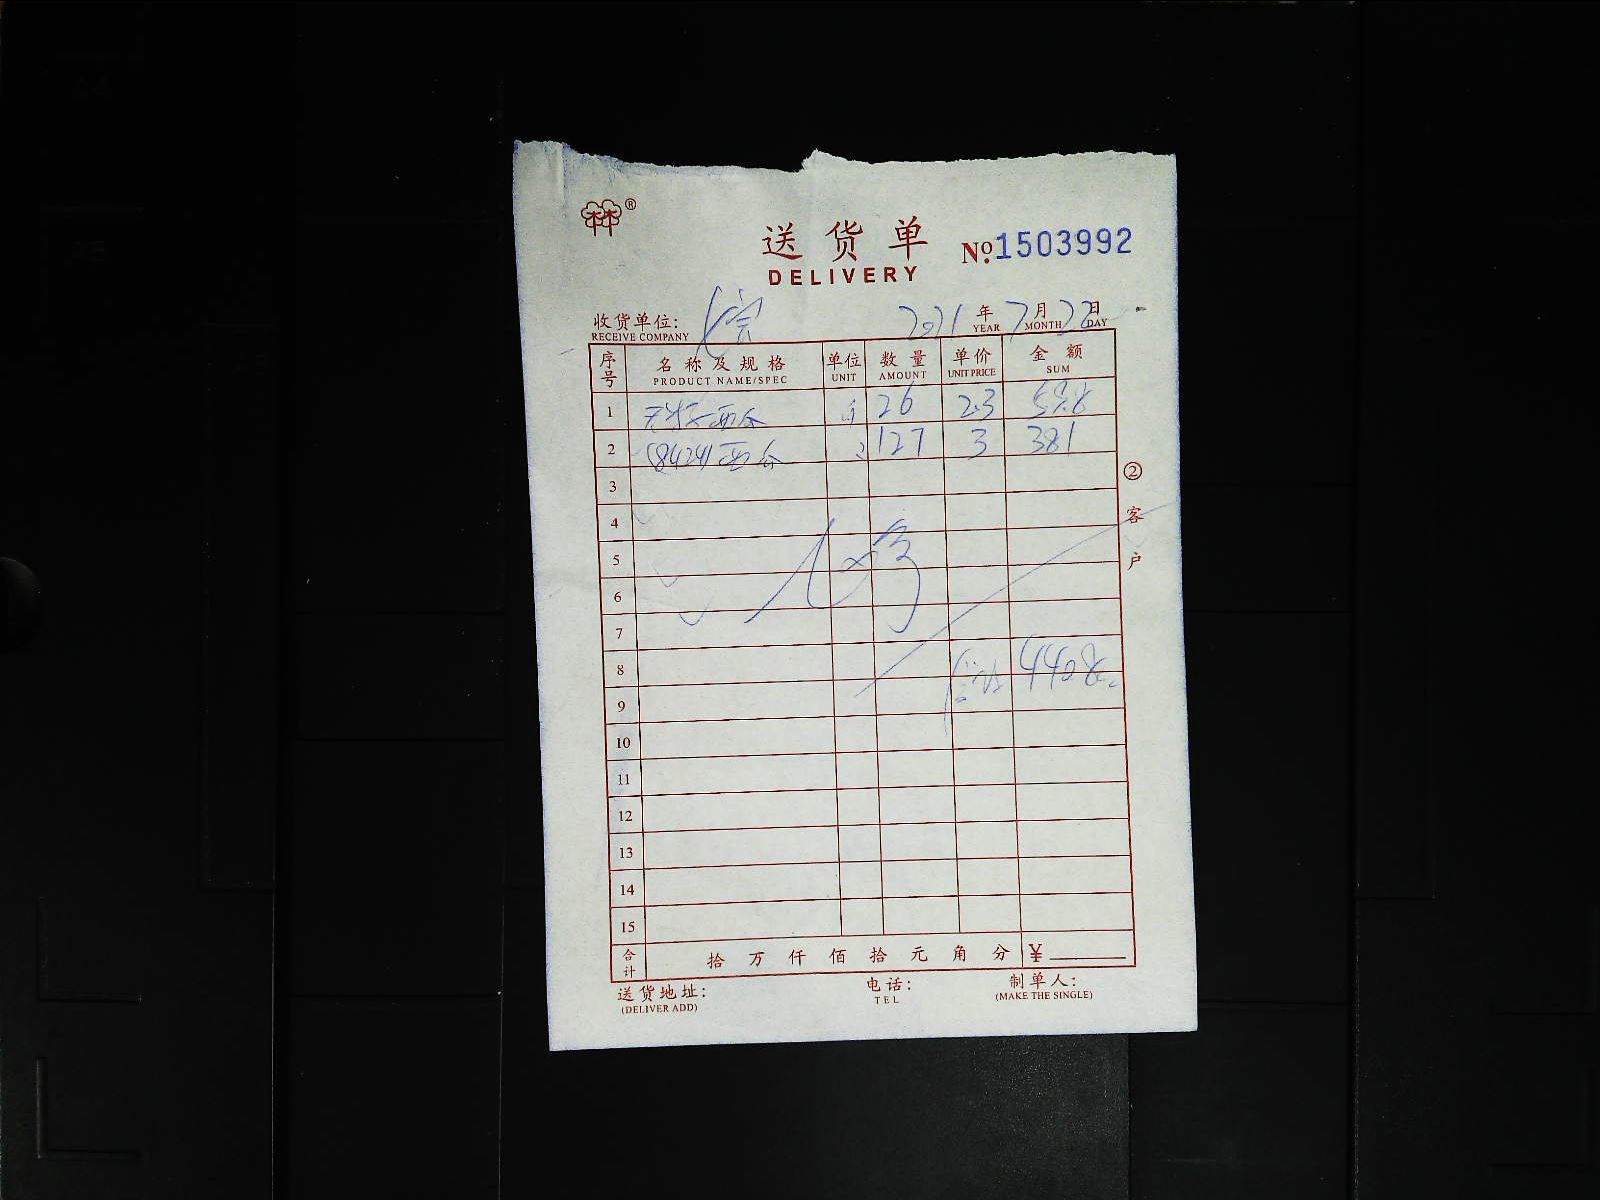 林®
送货单
DELIVERY
№ 1503992
收货单位:
RECEIVE COMPANY
2021年7月22日
YEAR MONTH DAY
序号 名称及规格 单位 数量 单价 金额
PRODUCT NAME/SPEC UNIT AMOUNT UNIT PRICE SUM
1 无籽西瓜 26 2.3 59.8
2 (8424)西瓜 127 3 381
3
4
5
6
7
8 4408
9
10
11
12
13
14
15
合计 拾 万 仟 佰 拾 元 角 分 ¥
送货地址: 电话: 制单人:
(DELIVER ADD) TEL (MAKE THE SINGLE)
②客户